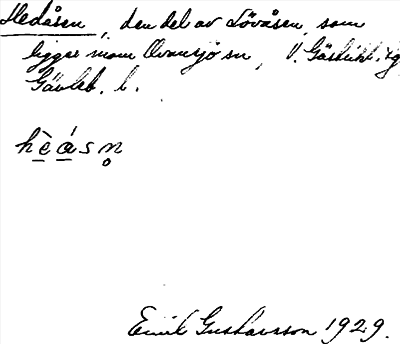 Hedåsen, den del av Lövåsen, som
ligger inom Ovansjö sn, V. Gästrikl.
Gävleb. l.
hèásn̥
Emil Gustavsson 1929.